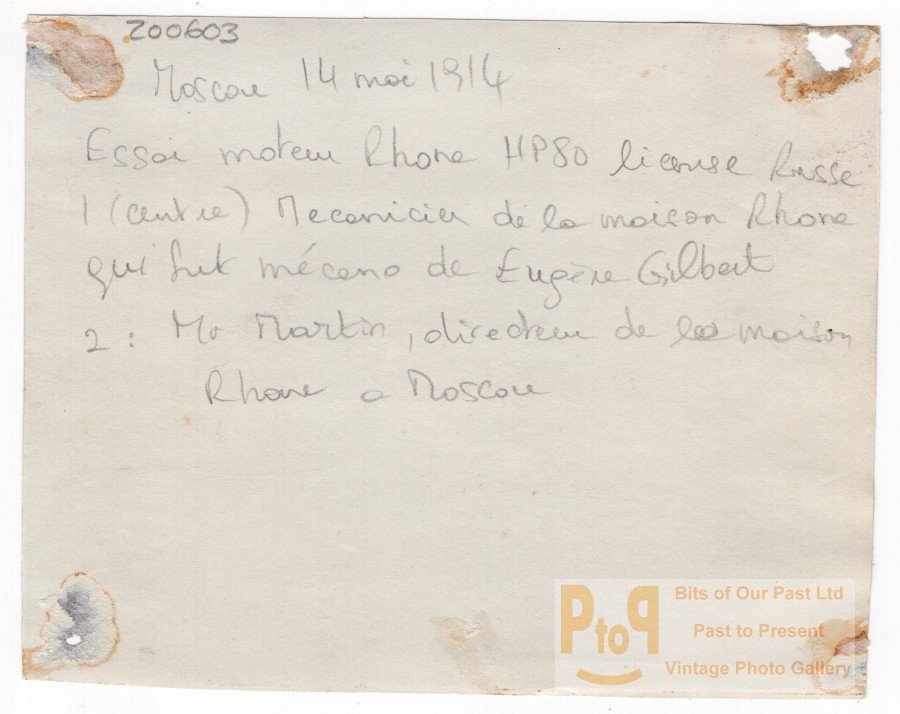 200603
Moscou 14 mai 1914
Essai moteur Rhone HP80 license Russe
1 (centre) Mecanicien de la maison Rhone
qui fut mécano de Eugène Gilbert
2 : Mr Martin, directeur de la maison
Rhone a Moscou
PtoP
Bits of Our Past Ltd
Past to Present
Vintage Photo Gallery